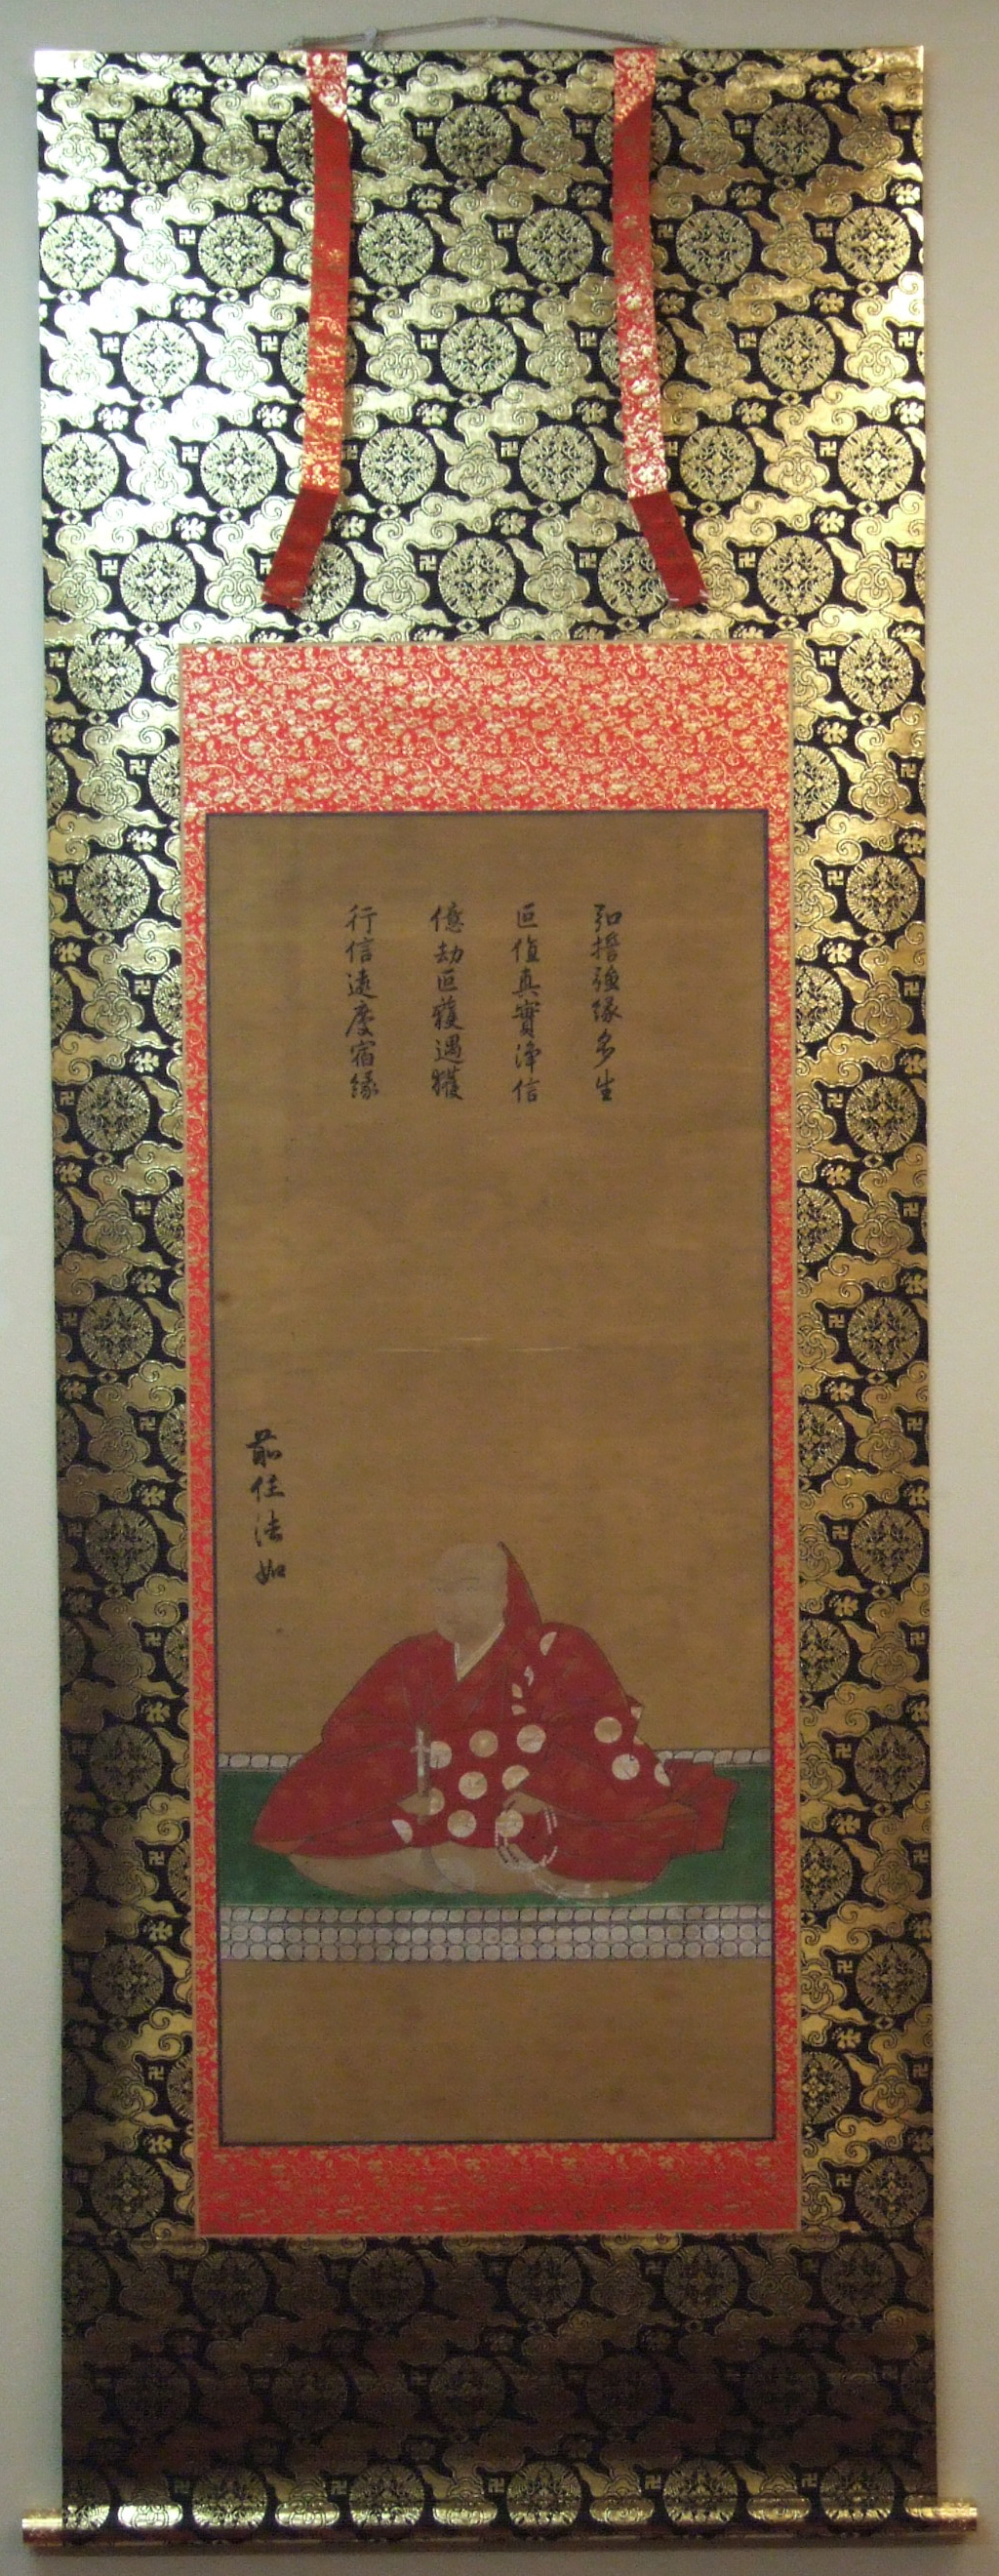 弘誓強縁多生
叵値真實浄信
億劫叵獲遇獲
行信遠慶宿縁
前住法如